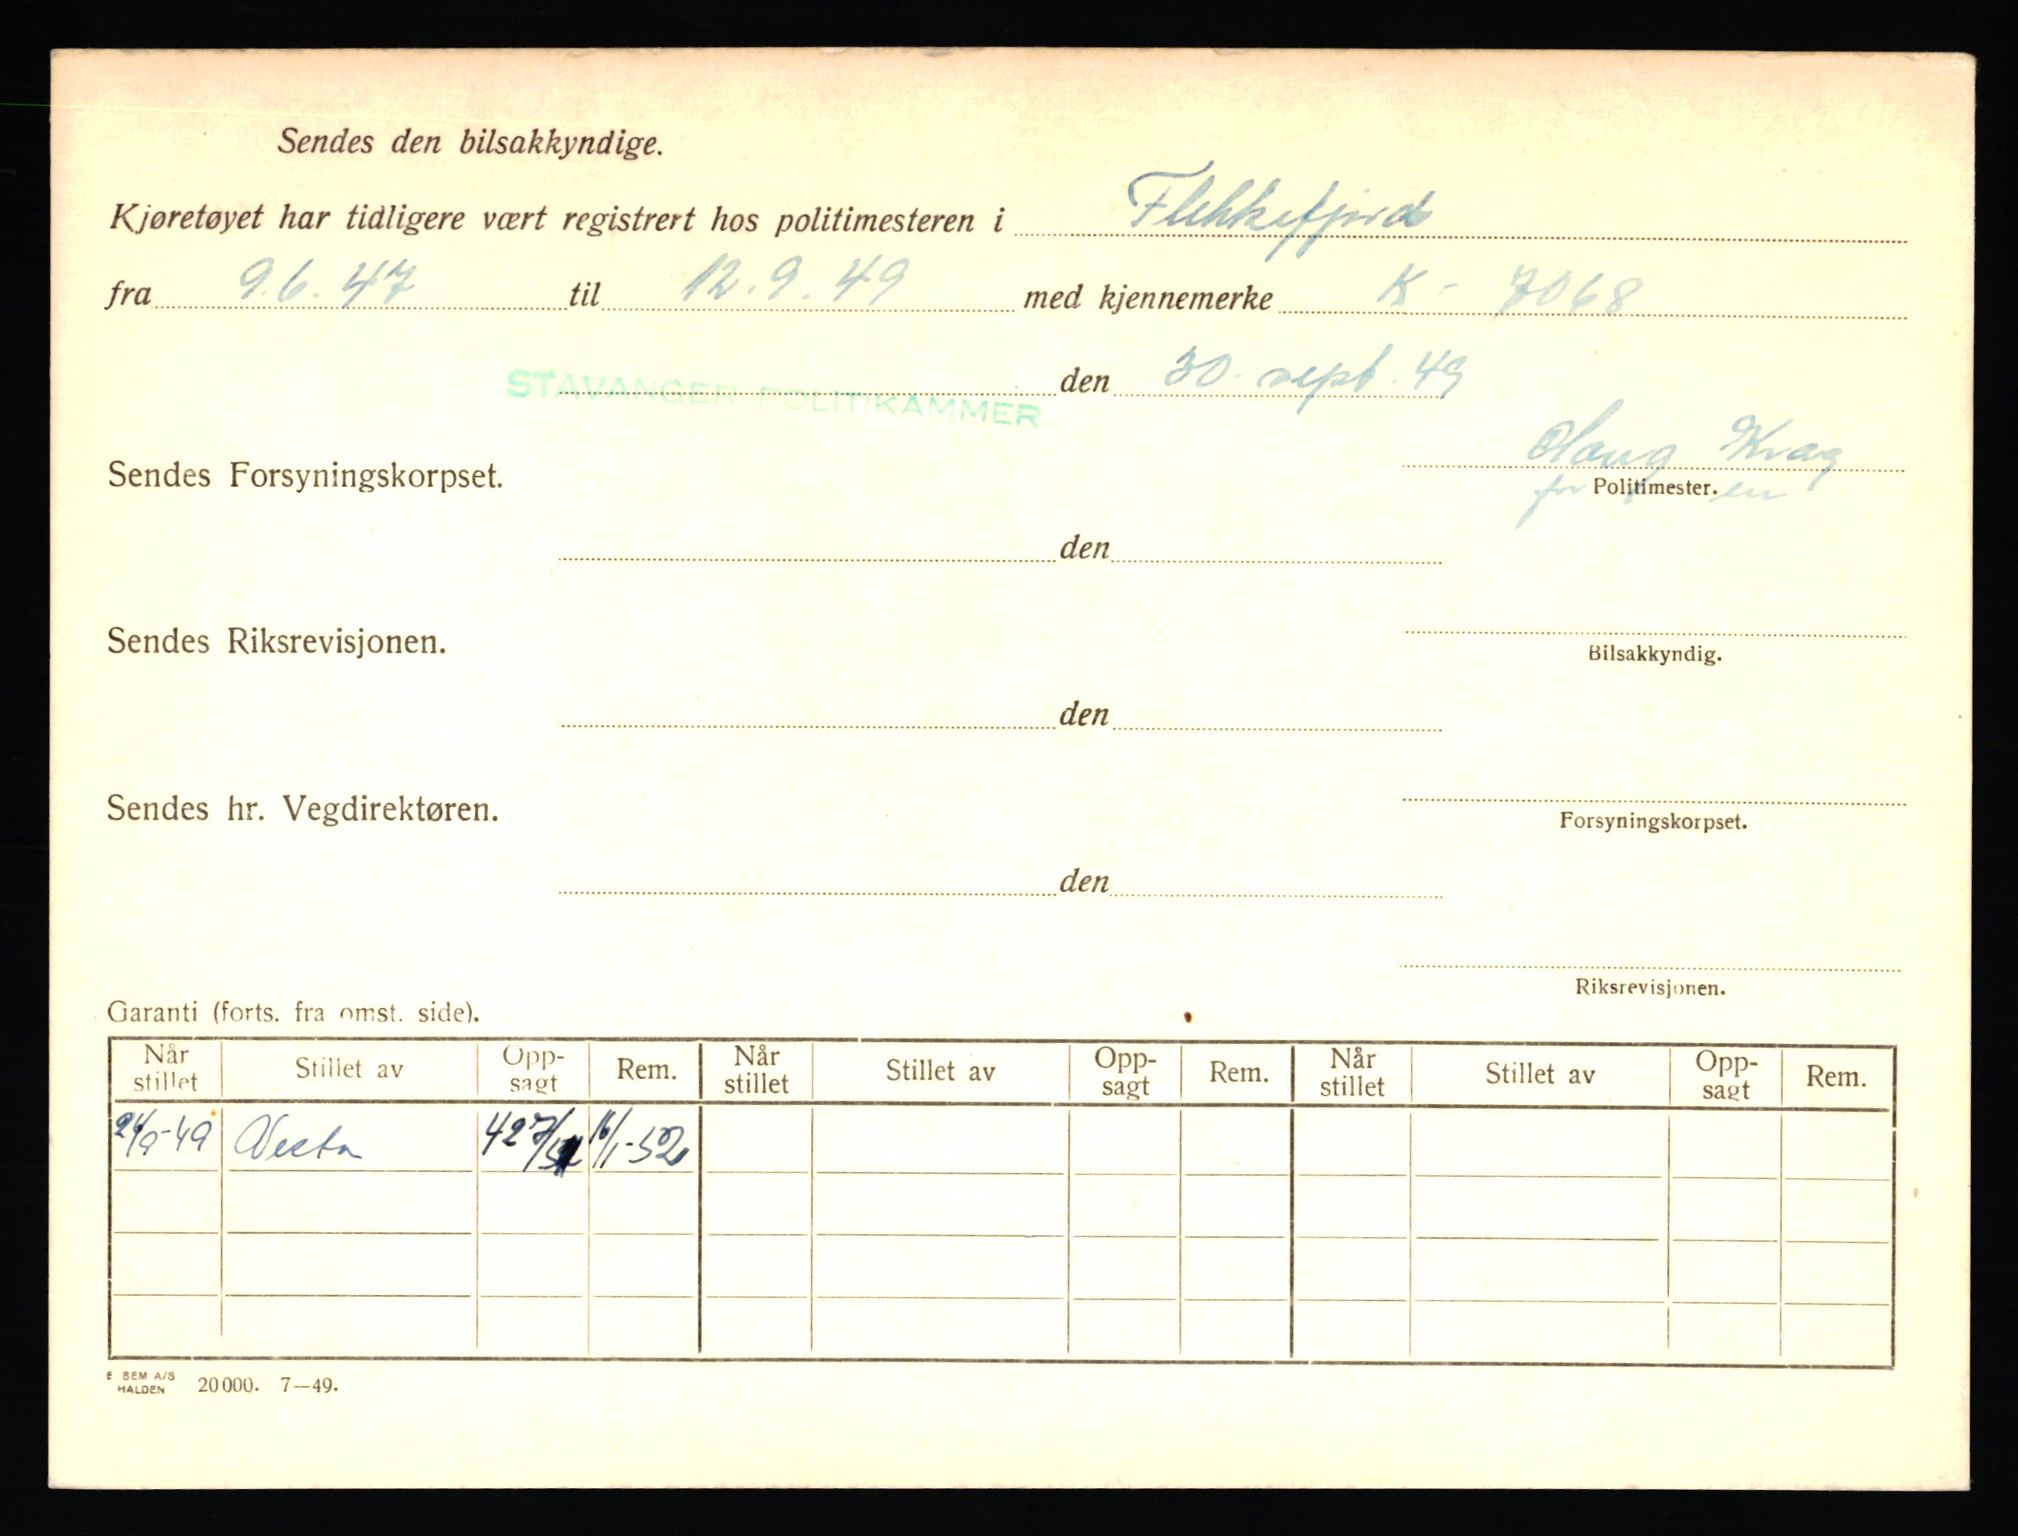 Sendes den bilsakkyndige.
Kjøretøyet har tidligere vært registrert hos politimesteren i Flekkefjord
fra 9.6.47 til 12.9.49 med kjennemerke K - 7068
STAVANGER POLITIKAMMER den 30. sept. 49
Krag
Sendes Forsyningskorpset.
for Politimester.en
den
Sendes Riksrevisjonen.
Bilsakkyndig.
den
Sendes hr. Vegdirektøren.
Forsyningskorpset.
den
Riksrevisjonen.
Garanti (forts. fra omst. side).
Når stillet Stillet av Opp-sagt Rem. Når stillet Stillet av Opp-sagt Rem. Når stillet Stillet av Opp-sagt Rem.
24/9-49 Vesta 427/52 16/1-52
E SEM A/S
HALDEN 20000. 7—49.